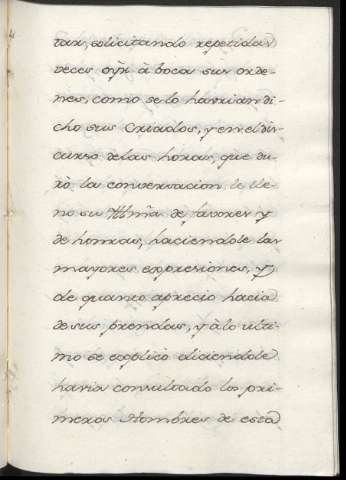 tar, solicitando repetidas
veces oyr à boca sus orde-
nes, como se lo havrian di-
cho sus Criados, y en el dis-
curso de las horas, que du-
rò la conversacion le lle-
no su Illma de favores y
de honras, haciendole las
mayores expresiones, y
de quanto aprecio hacia
de sus prendas, y à lo ulti-
mo se explicò diciendole
havia consultado los pri-
meros Hombres de esta